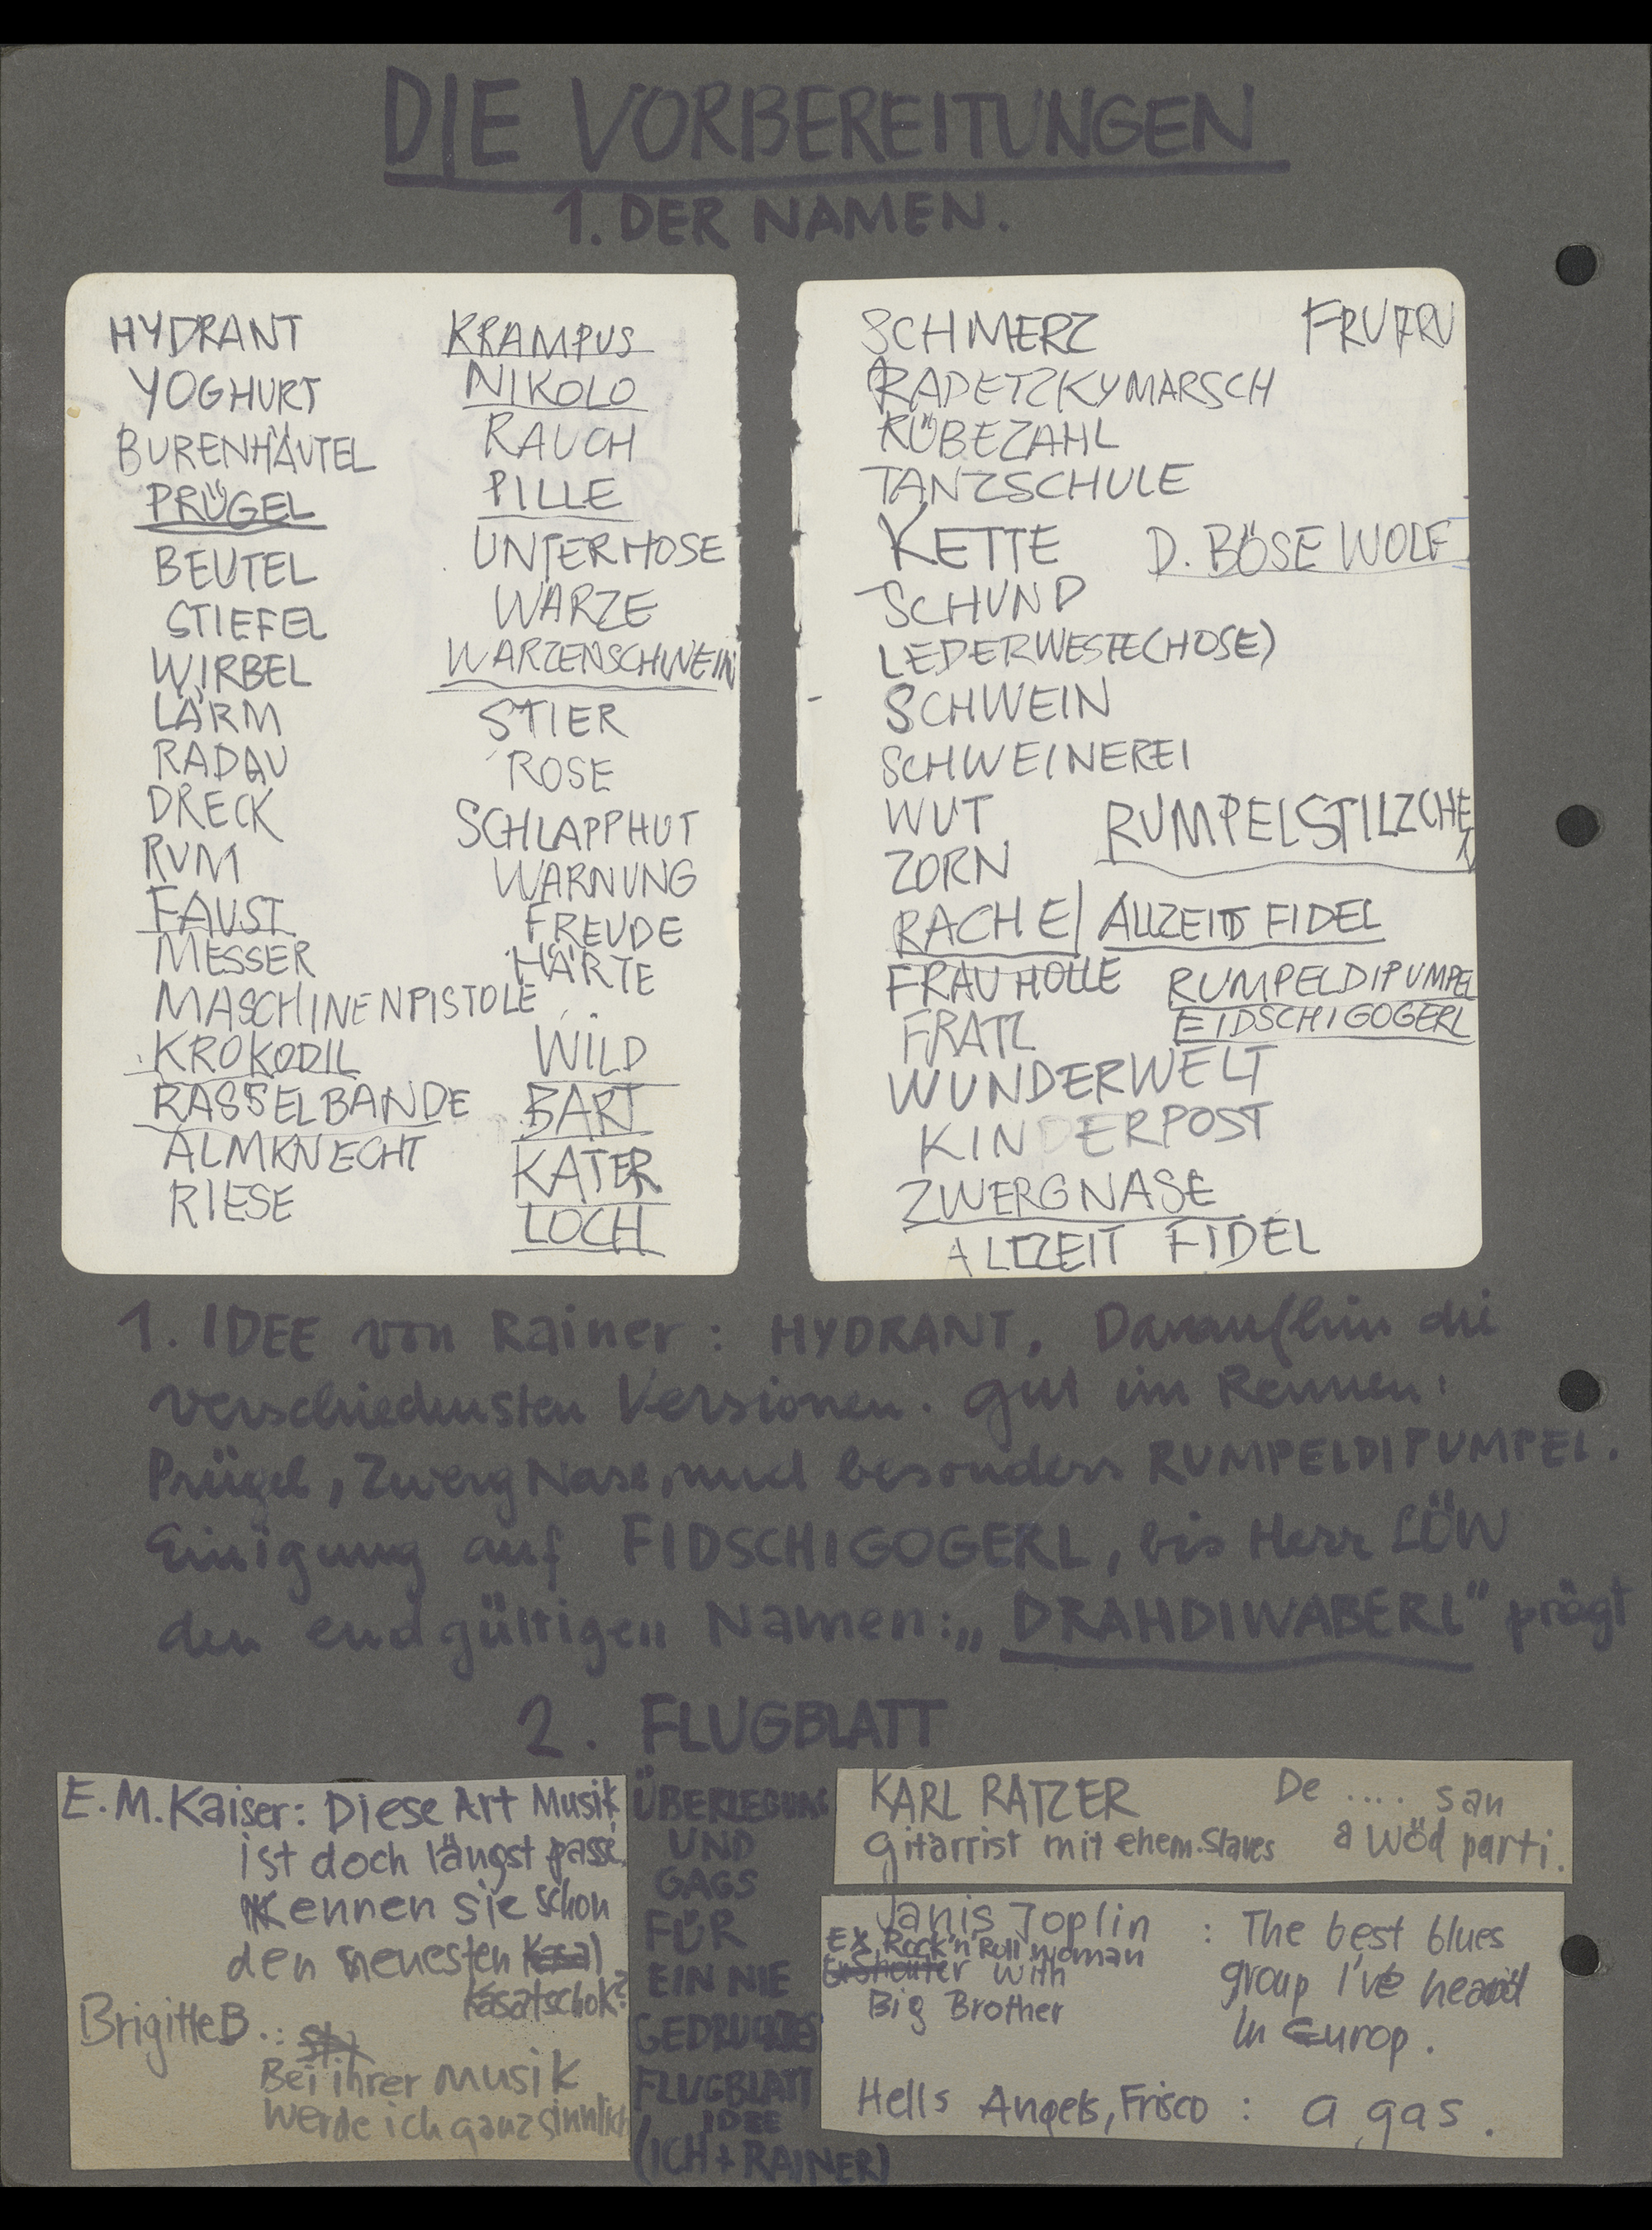 DIE VORBEREITUNGEN
1. DER NAMEN.
HYDRANT
YOGHURT
BURENHÄUTEL
PRÜGEL
BEUTEL
STIEFEL
WIRBEL
LÄRM
RADAU
DRECK
RUM
FAUST
MESSER
MASCHINENPISTOLE
KROKODIL
RASSELBANDE
ALMKNECHT
RIESE
KRAMPUS
NIKOLO
RAUCH
PILLE
UNTERHOSE
WARZE
WARZENSCHWEIN
STIER
ROSE
SCHLAPPHUT
WARNUNG
FREUDE
HÄRTE
WILD
BART
KATER
LOCH
SCHMERZ
RADETZKYMARSCH
RÜBEZAHL
TANZSCHULE
KETTE
SCHUND
LEDERWESTE(HOSE)
SCHWEIN
SCHWEINEREI
WUT
ZORN
RACHE
FRAU HOLLE
FRATZ
WUNDERWELT
KINDERPOST
ZWERGNASE
ALLZEIT FIDEL
FRUFRU
D. BÖSE WOLF
RUMPELSTILZCHEN
ALLZEIT FIDEL
RUMPELDIPUMPEL
FIDSCHIGOGERL
1. IDEE von Rainer: HYDRANT. Daraufhin die
verschiedensten Versionen. gut im Rennen:
Prügel, Zwerg Nase, und besonders RUMPELDIPUMPEL.
Einigung auf FIDSCHIGOGERL, bis Herr LÖW
den endgültigen Namen: „DRAHDIWABERL" prägt
2. FLUGBLATT
E. M. Kaiser: Diese Art Musik
ist doch längst passé.
Kennen sie schon
den neuesten Kasa
Kasatschok?
Brigitte B.:
Bei ihrer Musik
werde ich ganz sinnlich
ÜBERLEGUNG
UND
GAGS
FÜR
EIN NIE
GEDRUCKTES
FLUGBLATT
IDEE
(ICH + RAINER)
KARL RATZER De .... san
gitarrist mit ehem. Slaves a Wöd parti.
Janis Joplin : The best blues
EX Rock'n'Roll woman
Shouter with group I've heard
Big Brother in Europ.
Hells Angels, Frisco : a gas.